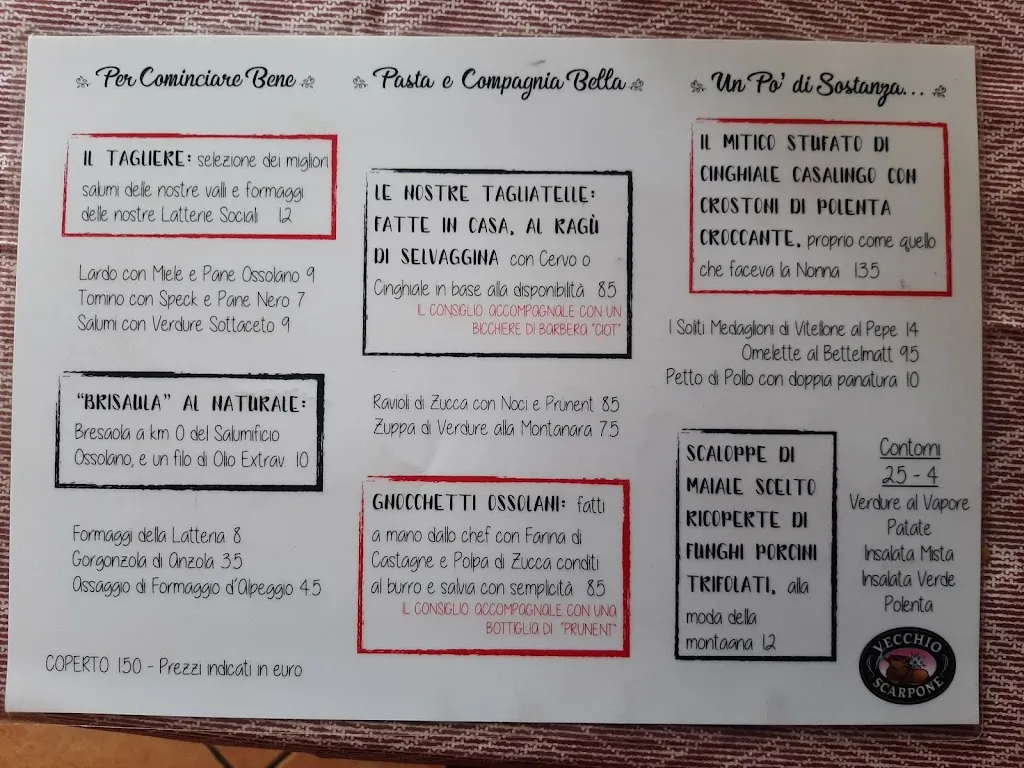 Per Cominciare Bene
IL TAGLIERE: selezione dei migliori
salumi delle nostre valli e formaggi
delle nostre Latterie Sociali 12
Lardo con Miele e Pane Ossolano 9
Tomino con Speck e Pane Nero 7
Salumi con Verdure Sottaceto 9
"BRISAULA" AL NATURALE:
Bresaola a km 0 del Salumificio
Ossolano, e un filo di Olio Extrav. 10
Formaggi della Latteria 8
Gorgonzola di Anzola 3.5
Assaggio di Formaggio d'Alpeggio 4.5
COPERTO 1.50 - Prezzi indicati in euro
Pasta e Compagnia Bella
LE NOSTRE TAGLIATELLE:
FATTE IN CASA, AL RAGÙ
DI SELVAGGINA con Cervo o
Cinghiale in base alla disponibilità 8.5
IL CONSIGLIO: ACCOMPAGNALE CON UN
BICCHERE DI BARBERA "CIOT"
Ravioli di Zucca con Noci e Prunent 8.5
Zuppa di Verdure alla Montanara 7.5
GNOCCHETTI OSSOLANI: fatti
a mano dallo chef con Farina di
Castagne e Polpa di Zucca conditi
al burro e salvia con semplicità 8.5
IL CONSIGLIO: ACCOMPAGNALE CON UNA
BOTTIGLIA DI "PRUNENT"
Un Po' di Sostanza...
IL MITICO STUFATO DI
CINGHIALE CASALINGO CON
CROSTONI DI POLENTA
CROCCANTE, proprio come quello
che faceva la Nonna 13.5
I Soliti Medaglioni di Vitellone al Pepe 14
Omelette al Bettelmatt 9.5
Petto di Pollo con doppia panatura 10
SCALOPPE DI
MAIALE SCELTO
RICOPERTE DI
FUNGHI PORCINI
TRIFOLATI, alla
moda della
montagna 12
Contorni
2.5 - 4
Verdure al Vapore
Patate
Insalata Mista
Insalata Verde
Polenta
VECCHIO
SCARPONE